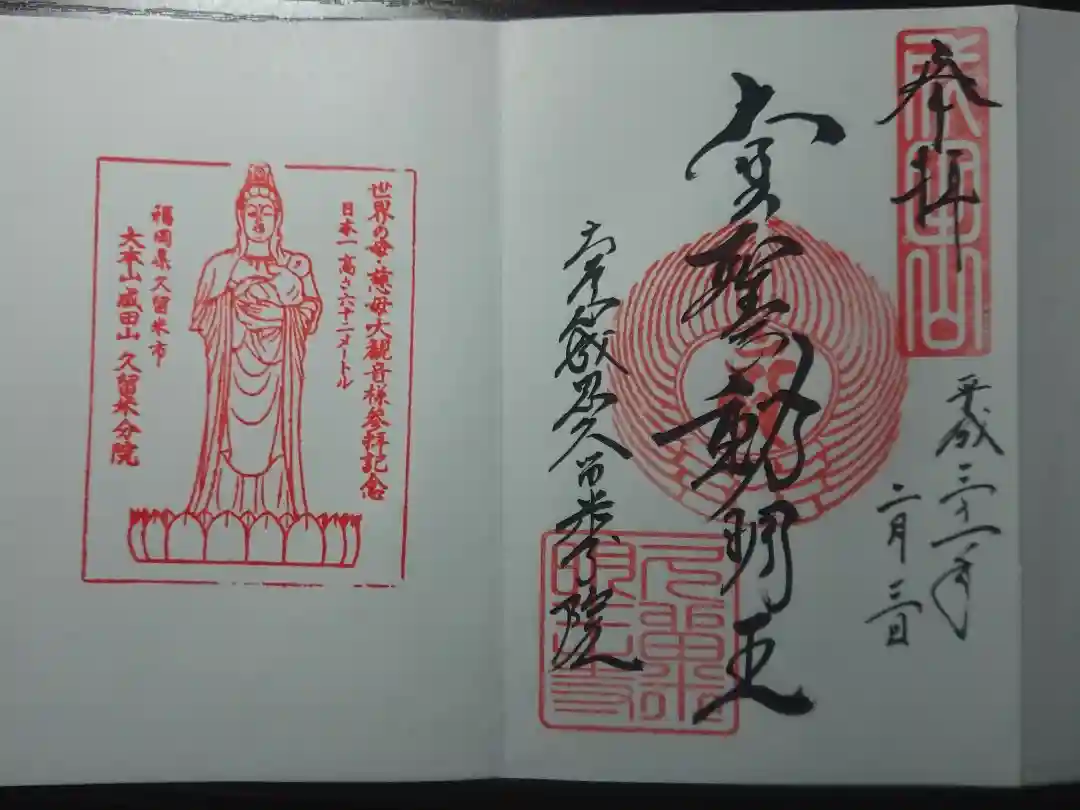 奉拝
平成三十一年
二月三日
大聖不動明王
大本山成田山久留米分院
世界の母・慈母大観音様参拝記念
日本一高さ六十二メートル
福岡県久留米市
大本山成田山久留米分院